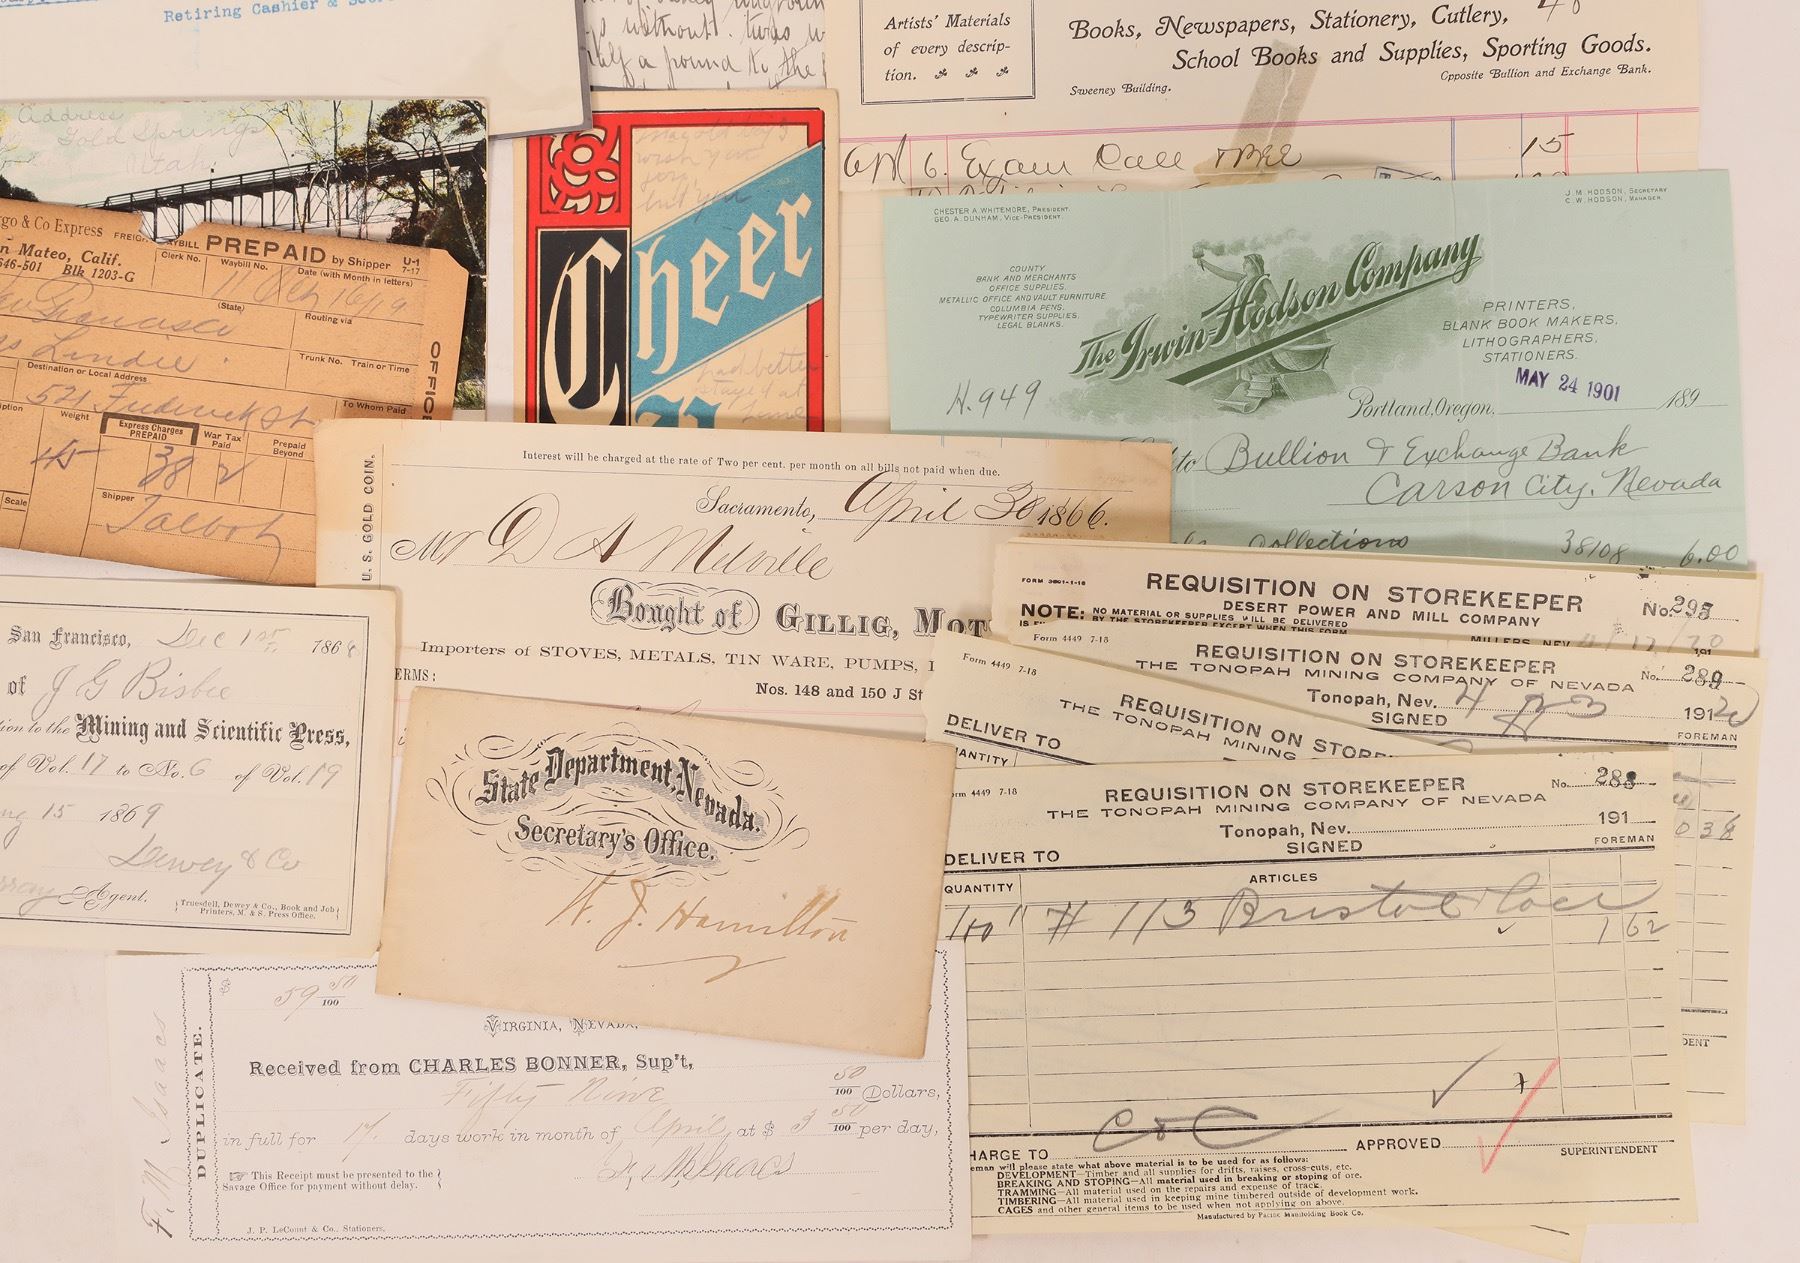 Retiring Cashier &
without. twas
half a pound to the
Artists' Materials
of every descrip-
tion.
Books, Newspapers, Stationery, Cutlery,
School Books and Supplies, Sporting Goods.
Opposite Bullion and Exchange Bank.
Sweeney Building.
6. Exam 15
Address
Gold Springs
Utah
go & Co Express
n Mateo, Calif.
646-501 Blk 1203-G
PREPAID by Shipper
U-1
7-17
Clerk No.
Waybill No.
Date (with Month in letters)
(State)
Routing via
Francisco
Lindie.
Trunk No. Train or Time
Destination or Local Address
521 Frederick St
To Whom Paid
Weight
Express Charges
PREPAID
War Tax
Paid
Prepaid
Beyond
45 38 2
Scale
Shipper
Talbot
OFFICE
wish you
but you
Cheer
had better
stayed at
home
CHESTER A WHITEMORE, PRESIDENT.
GEO. A. DUNHAM, VICE-PRESIDENT.
J. M. HODSON, SECRETARY
C. W. HODSON, MANAGER.
COUNTY
BANK AND MERCHANTS
OFFICE SUPPLIES.
METALLIC OFFICE AND VAULT FURNITURE
COLUMBIA PENS,
TYPEWRITER SUPPLIES,
LEGAL BLANKS.
The Irwin-Hodson Company
PRINTERS,
BLANK BOOK MAKERS,
LITHOGRAPHERS,
STATIONERS.
MAY 24 1901
H.949
Portland, Oregon, 189
to Bullion & Exchange Bank
Carson City, Nevada
Collections 38108 6.00
U. S. GOLD COIN.
Interest will be charged at the rate of Two per cent. per month on all bills not paid when due.
Sacramento, April 30 1866.
Mr D A Melville
Bought of GILLIG, MOT
Importers of STOVES, METALS, TIN WARE, PUMPS,
ERMS:
Nos. 148 and 150 J St
San Francisco, Dec 1st, 1868
of J G Bisbee
tion to the Mining and Scientific Press,
of Vol. 17 to No. 6 of Vol. 19
15 1869
Dewey & Co
Agent.
Truesdell, Dewey & Co., Book and Job
Printers, M. & S. Press Office.
State Department, Nevada.
Secretary's Office.
W. J. Hamilton
FORM 3601-1-18
REQUISITION ON STOREKEEPER
DESERT POWER AND MILL COMPANY
No. 295
NOTE: NO MATERIAL OR SUPPLIES WILL BE DELIVERED
BY THE STOREKEEPER EXCEPT WHEN THIS FORM
MILLERS, NEV. 4/17/20
Form 4449 7-18
REQUISITION ON STOREKEEPER
THE TONOPAH MINING COMPANY OF NEVADA
No. 289
Tonopah, Nev. 4 23 1920
SIGNED
FOREMAN
Form 4449 7-18
REQUISITION ON STOR
THE TONOPAH MINING
DELIVER TO
ANTITY
rm 4449 7-18
REQUISITION ON STOREKEEPER
THE TONOPAH MINING COMPANY OF NEVADA
No. 288
Tonopah, Nev. 191
SIGNED
FOREMAN
DELIVER TO
QUANTITY
ARTICLES
# 113 Bristol 1 62
C & C
HARGE TO
APPROVED
SUPERINTENDENT
eman will please state what above material is to be used for as follows:
DEVELOPMENT—Timber and all supplies for drifts, raises, cross-cuts, etc.
BREAKING AND STOPING—All material used in breaking or stoping of ore.
TRAMMING—All material used on the repairs and expense of track.
TIMBERING—All material used in keeping mine timbered outside of development work.
CAGES and other general items to be used when not applying on above.
Manufactured by Pacific Manifolding Book Co.
DENT
F. M. Isaacs
DUPLICATE.
$ 59 50/100
VIRGINIA, NEVADA,
Received from CHARLES BONNER, Sup't,
Fifty Nine 50/100 Dollars,
in full for 17 days work in month of April, at $ 3 50/100 per day,
This Receipt must be presented to the
Savage Office for payment without delay.
F. M. Isaacs
J. P. LeCount & Co., Stationers.